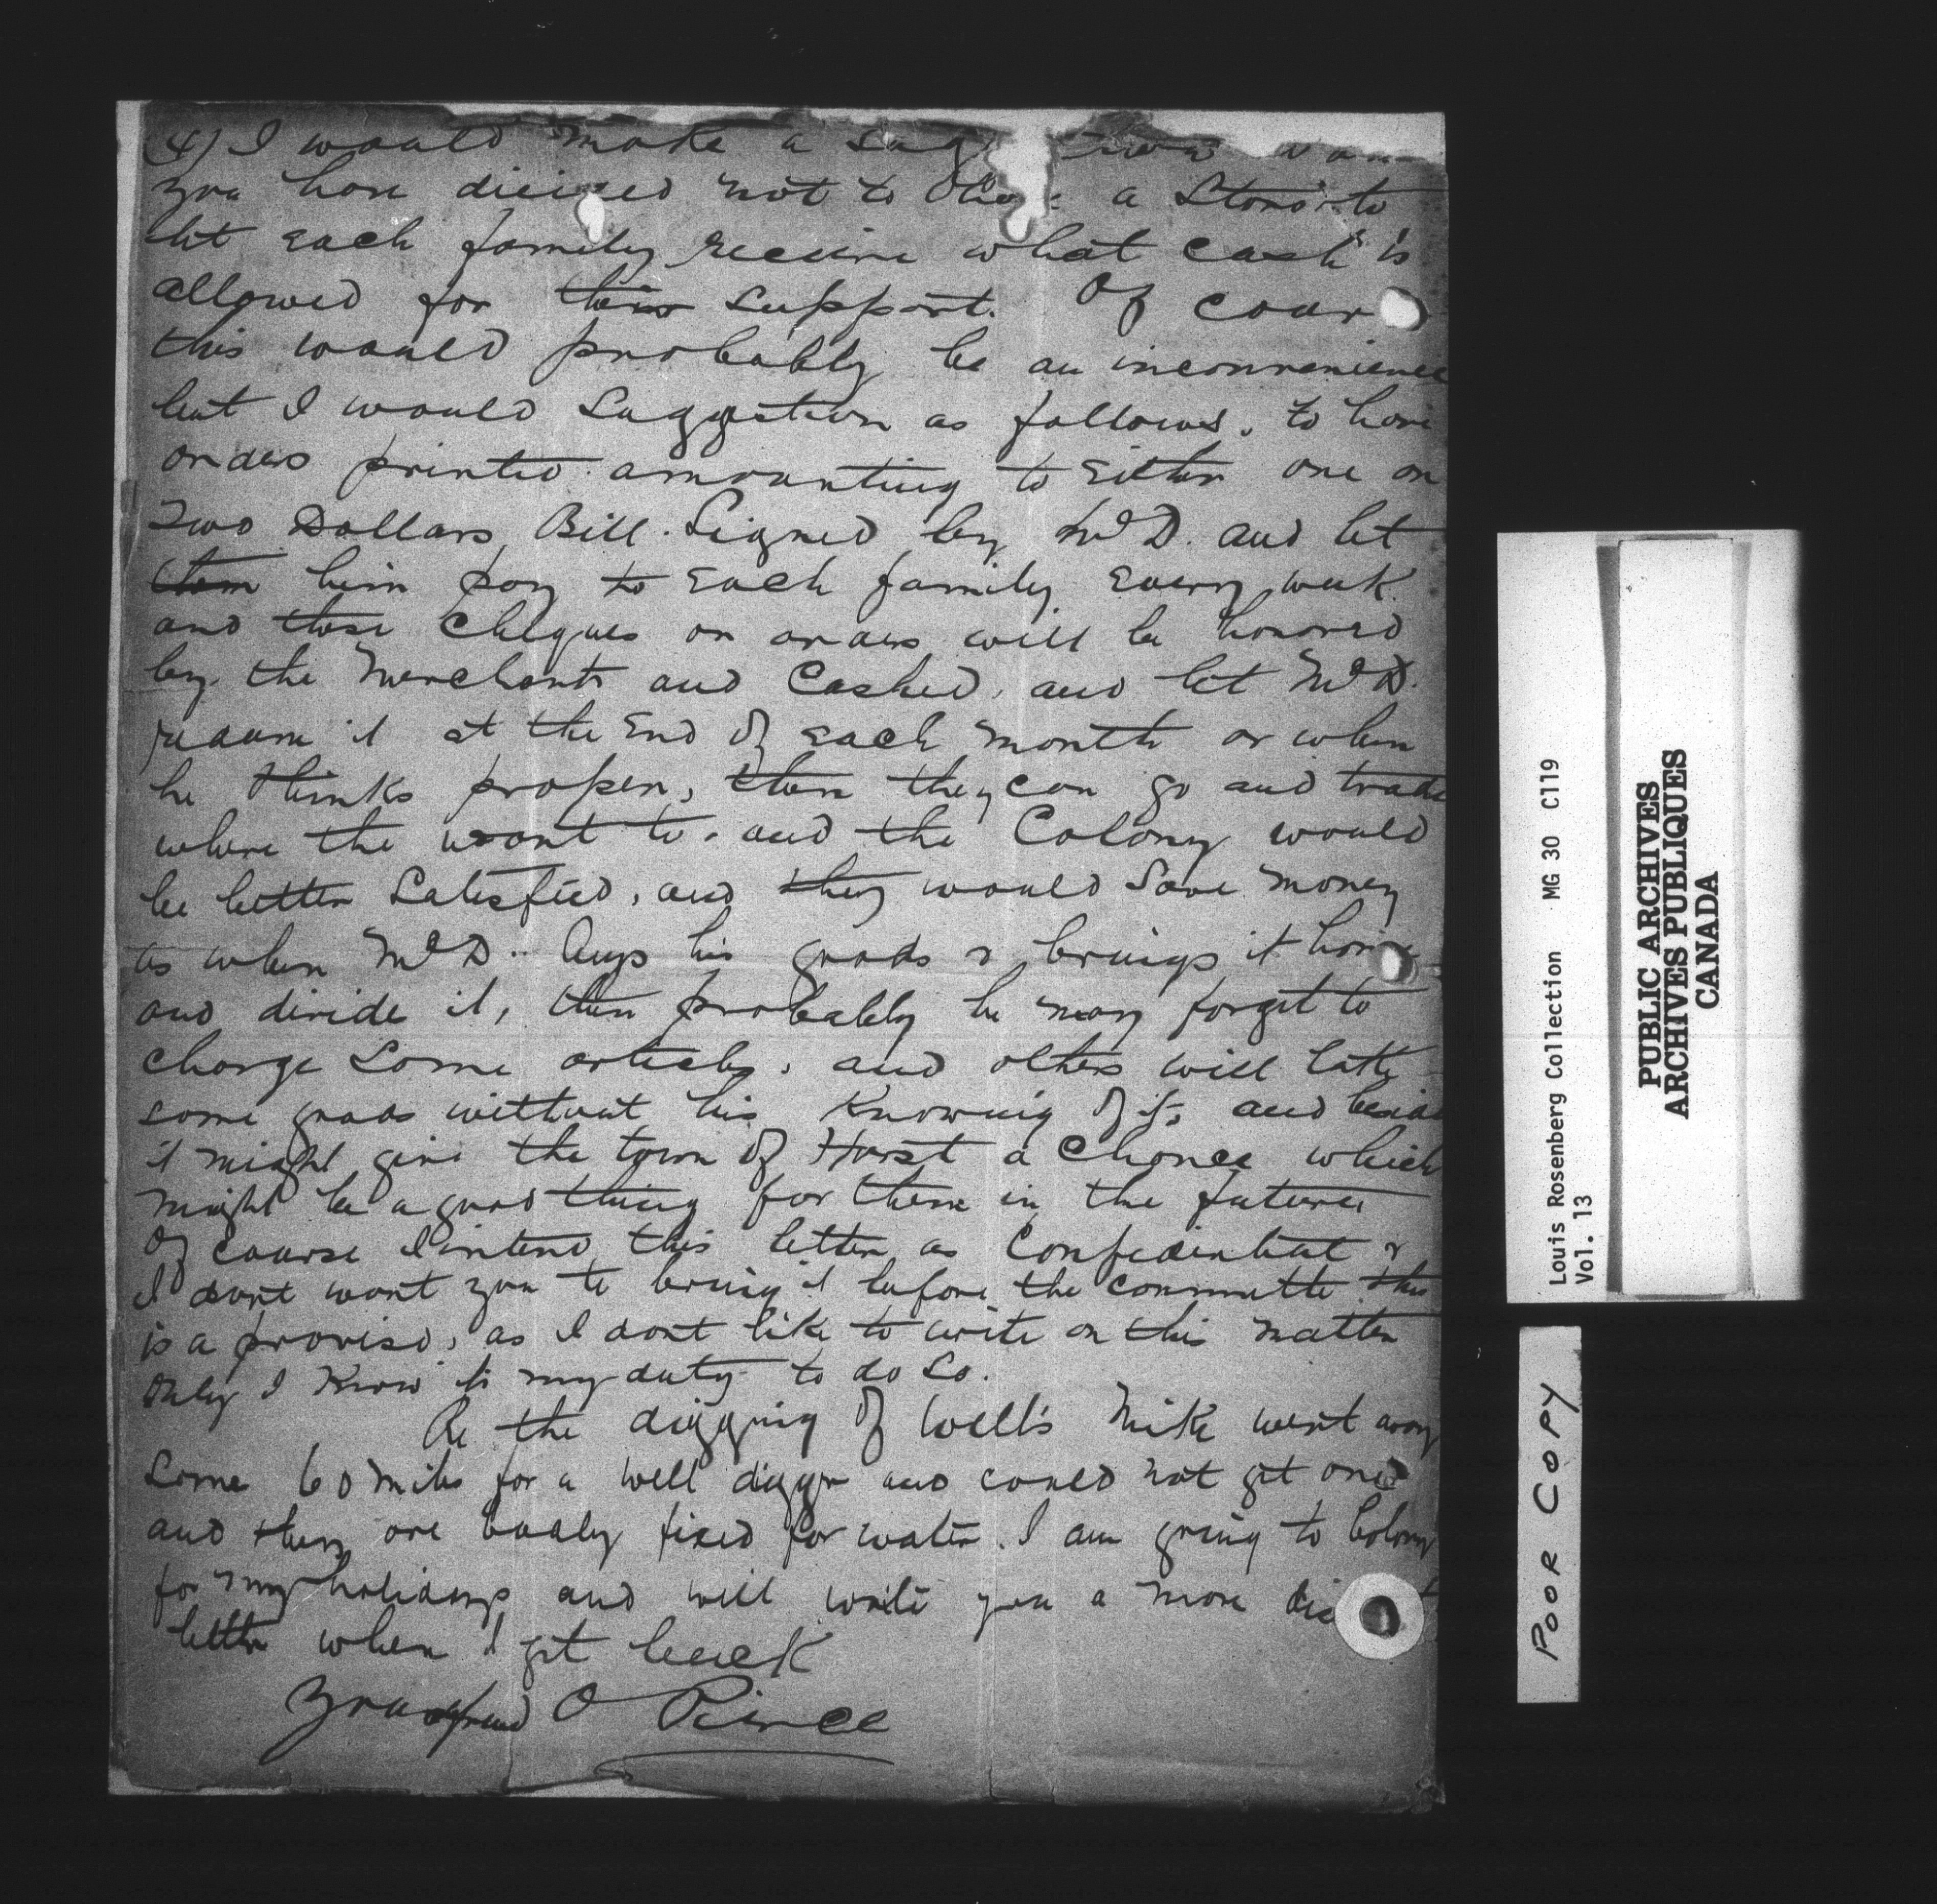 (4) I would make a
you have dicided not to a Store to
let each family recieve what cash is
allowed for their support. Of cour
this would probably be an inconvenience
but I would Suggestion as follows, to have
orders printed amounting to Either one or
Two Dollars Bill. Signed by Mr D. and let
them him pay to Each family Every week
and these Cheques or orders will be honored
by the Merchants and Cashed, and let Mr D.
redeem it at the End of each month or when
he thinks proper, then they can go and trade
where the want to, and the Colony would
be better Satisfied, and they would Save money
as when Mr D. buys his goods & brings it home
and divide it, then probably he may forget to
charge Some articles, and others will take
some goods without his Knowing of it, and
it might give the town of Hirst a Chance which
might be a good thing for them in the future,
Of course I intend this letter as Confidential &
I dont want you to bring it before the committe this
is a proviso, as I dont like to write on this matter
Only I Know its my duty to do So.
Re the digging of Wells Mike went away
Some 60 miles for a well digger and could not get one
and they are badly fixed for water. I am going to Colony
for my holidays and will write you a more
letter when I get back
Your friend O Pierce
Louis Rosenberg Collection MG 30 C119
Vol. 13
PUBLIC ARCHIVES
ARCHIVES PUBLIQUES
CANADA
POOR COPY